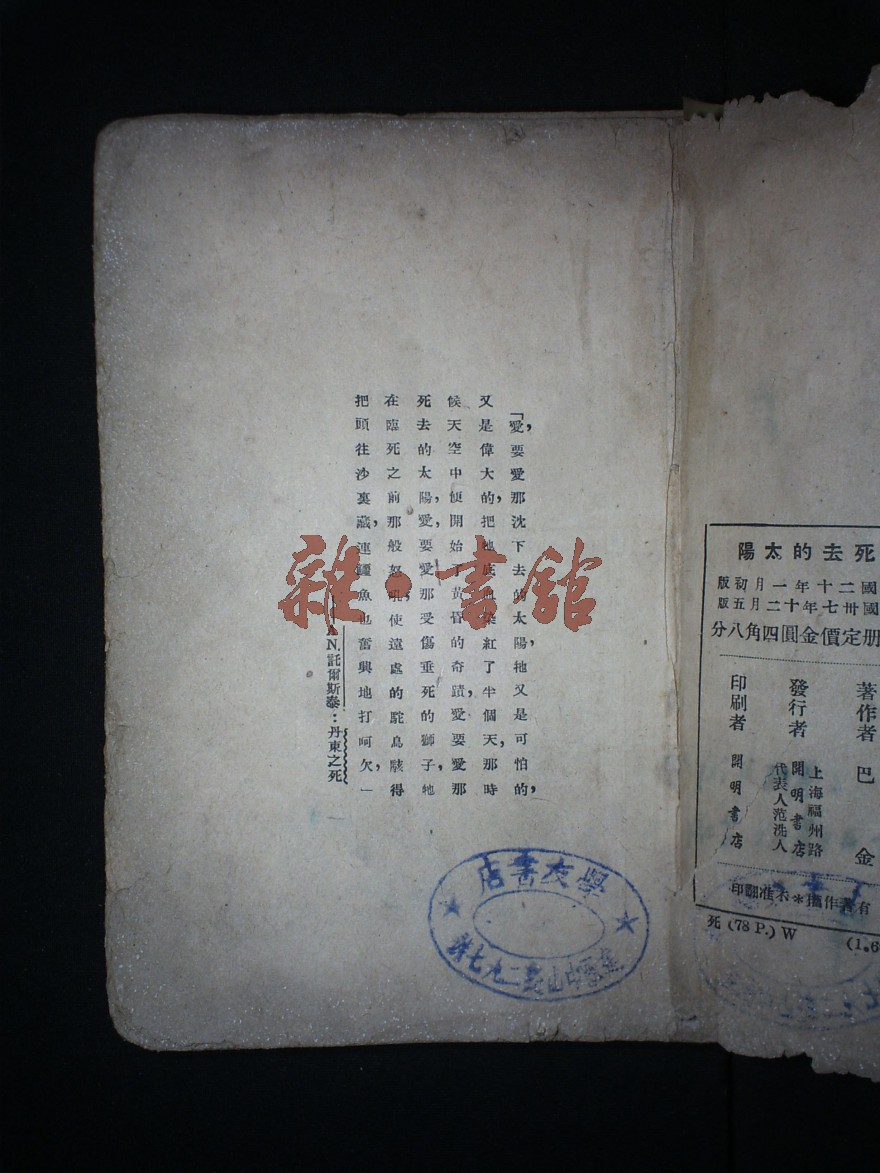 「愛，要愛那沈下去的太陽，牠又是可怕的，
又是偉大的，把牠底血染紅了半個天，那時
候天空中便開始了黃昏的奇蹟，愛要愛那
死去的太陽，愛，要愛那受傷垂死的獅子，牠
在臨死之前那般怒吼，使遠處的駝鳥駭得
把頭往沙裏藏，連鱷魚也奮興地打呵欠，」
AN.託爾斯泰：丹東之死
雜·書館
學友書店
中山
二九七號
死去的太陽
國二十年一月初版
國卅七年十二月五版
册定價金圓四角八分
著作者 巴金
發行者 開明書店
上海福州路
代表人范洗人
印刷者 開明書店
有著作權＊不准翻印
死(78 P.)W
(1.6